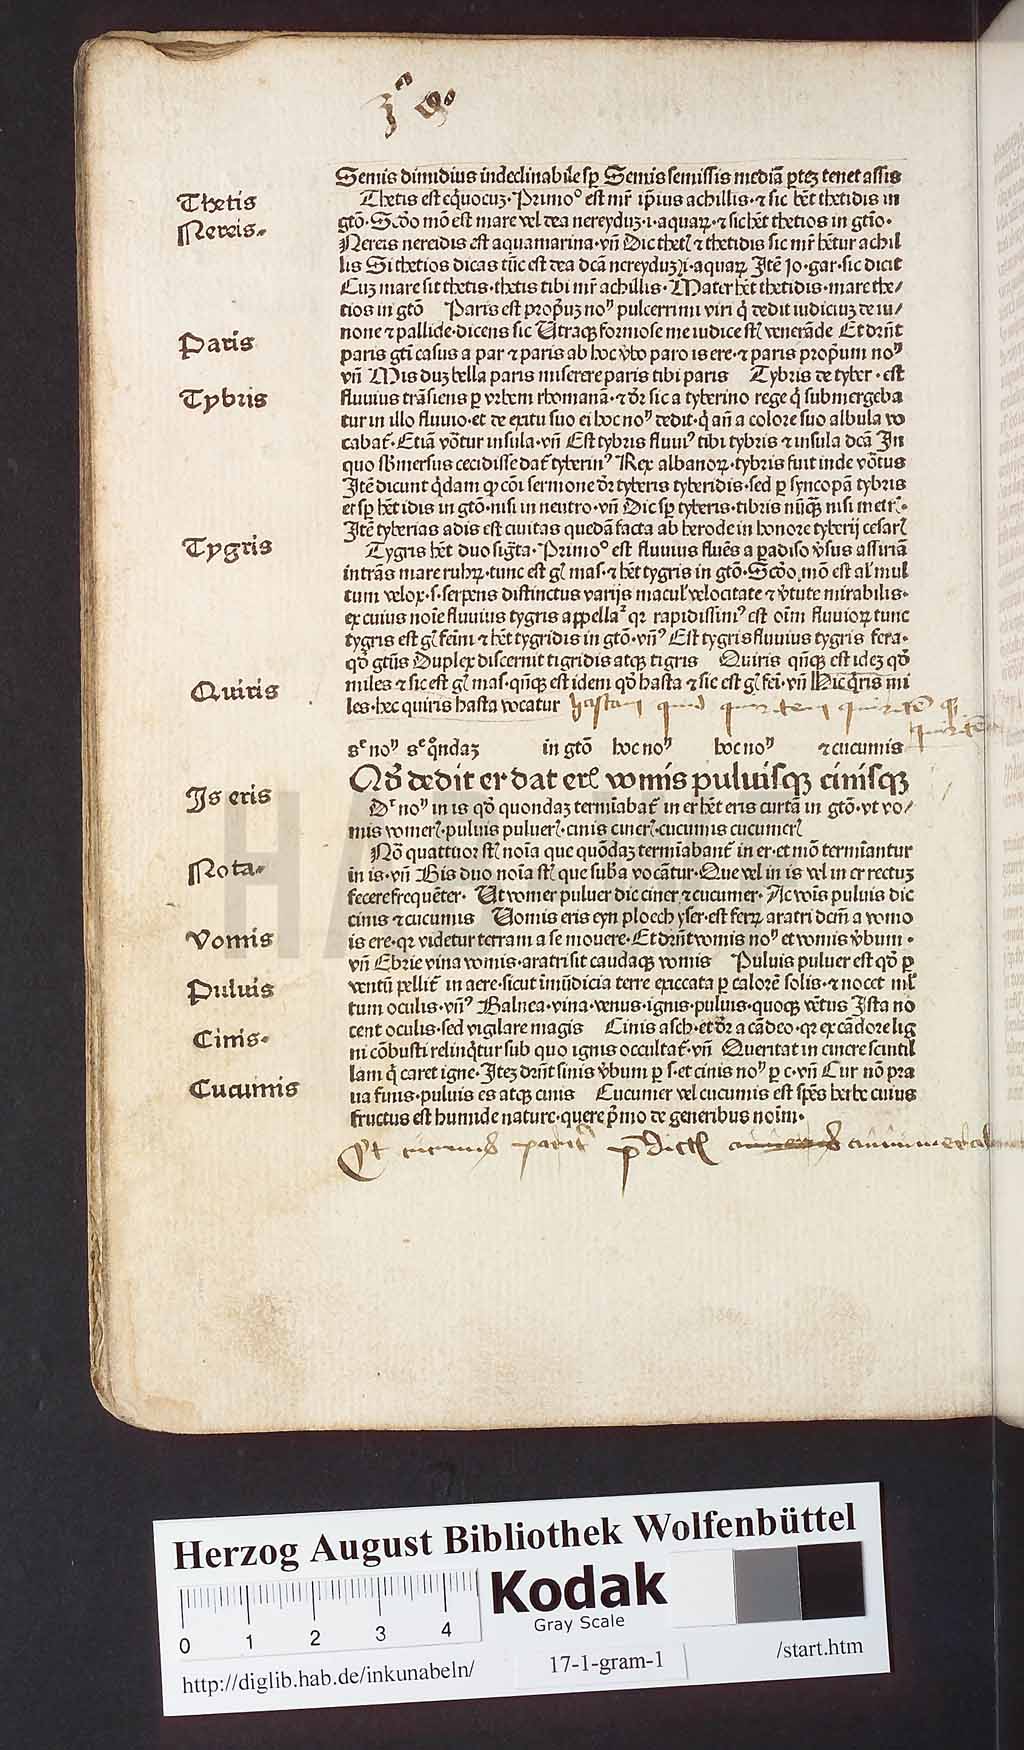 Semis dimidius indeclinabile sꝑ Semis semissis mediā ꝑtez tenet assis
Thetis
Thetis est eq̄uocuz. Primoꝰ est mr̄ ip̄ius achillis. ⁊ sic hēt thetidis in
Nereis.
gtō. Scd̄o mō est mare vel dea nereyduz .i. aquaꝝ. ⁊ sic hēt thetios in gtīo.
Nereis nereidis est aqua marina. vñ Dic thetꝭ ⁊ thetidis sic mr̄ hētur achil
lis Si thetios dicas tūc est dea dcā nereyduz .i. aquaꝝ Itē Jo. gar. sic dicit
Cuz mare sit thetis. thetis tibi mr̄ achillis. Mater hēt thetidis. mare the/
tios in gtō Paris est prop̄uz noꝰ pulcerrimi viri q̄ dedit iudiciuz de iu/
Paris
none ⁊ pallide. dicens sic Utraqꝫ formose me iudice st̄ꝭ venerāde Et dr̄nt
paris gti casus a par ⁊ paris ab hoc v̄bo paro is ere. ⁊ paris prop̄um noꝰ
vñ Mis duz bella paris miserere paris tibi paris Tybris de tyber. est
Tybris
fluuius trāsiens ꝑ vrbem rhomanā. ⁊ dr̄ sic a tyberino rege q̄ submergeba
tur in illo fluuio. et de exitu suo ei hoc noꝰ dedit. q̄ añ a colore suo albula vo
cabat̄. Etiā vōtur insula. vñ Est tybris fluuiꝰ tibi tybris ⁊ insula dcā In
quo sb̄mersus cecidisse dat̄ tyberinꝰ Rex albanoꝝ. tybris fuit inde vōtus
Itē dicunt q̄dam qꝫ cōi sermione dr̄ tyberis tyberidis. sed ꝑ syncopā tybris
et sꝑ hēt idis in gtō. nisi in neutro. vñ Dic sꝑ tyberis. tibris nūqꝫ nisi metrꝭ.
Itē tyberias adis est ciuitas quedā facta ab herode in honore tyberij cesarꝭ
Tygris
Tygris hēt duo sigta. Primoꝰ est fluuius fluēs a ꝑadiso v̄sus assiriā
intrās mare rubꝝ. tunc est gꝭ mas. ⁊ hēt tygris in gtō. Scd̄o mō est al̄ mul
tum velox .s. serpens distinctus varijs maculꝭ velocitate ⁊ v̄tute mirabilis.
ex cuius noīe fluuius tygris appellaᵗ qꝛ rapidissimꝰ est oīm fluuioꝝ tunc
tygris est gꝭ femi ⁊ hēt tygridis in gtō. vñꝰ Est tygris fluuius tygris fera.
qd̄ gtūs Duplex discernit tigridis atqꝫ tigris Quiris qn̄qꝫ est idez qd̄
Quiris
miles ⁊ sic est gꝭ mas. qn̄qꝫ est idem qd̄ hasta ⁊ sic est gꝭ fei. vñ Hic q̄ris mi
les. hec quiris hasta vocatur hastam
sᵉ noꝰ sᵉ q̄ndaz in gtō hoc noꝰ hoc noꝰ ⁊ cucumis
Qd̄ dedit er dat erꝭ vomis puluisqꝫ cinisqꝫ
Js eris
Dᵉ noꝰ in is qd̄ quondaz termīabat̄ in er hēt eris curtā in gtō. vt vo/
mis vomerꝭ. puluis puluerꝭ. cinis cinerꝭ. cucumis cucumerꝭ
Nota.
Nō quattuor st̄ꝭ noīa que quōdaz termīabant̄ in er. et mō termīantur
in is. vñ Bis duo noīa st̄ꝭ que sub̄a vocātur. Que vel in is vel in er rectuz
fecere frequēter. Ut vomer puluer dic ciner ⁊ cucumer. Ac voīs puluis dic
cinis ⁊ cucumis Uomis eris eyn ploech yser. est ferꝝ aratri dcm̄ a vomo
Vomis
is ere. qꝛ videtur terram a se mouere. Et dr̄nt vomis noꝰ et vomis v̄bum.
vñ Ebrie vina vomis. aratri sit caudaqꝫ vomis Puluis puluer est qd̄ ꝑ
Puluis
ventū pellit̄ in aere. sicut īmūdicia terre exiccata ꝑ calorē solis. ⁊ nocet ml̄
tum oculis. vñꝰ Balnea. vina. venus. ignis. puluis. quoqꝫ vētus Ista no
cent oculis. sed vigilare magis Cinis asch. et dr̄ a cādeo. qꝛ ex cādore lig
Cinis.
ni cōbusti relinq̄tur sub quo ignis occultat̄. vñ Queritat in cinere scintil
lam q̄ caret igne. Itez dr̄nt sinis v̄bum ꝑ s. et cinis noꝰ ꝑ c. vñ Cur nō pra
Cucumis
ua sinis. puluis es atqꝫ cinis Cucumer vel cucumis est spēs herbe cuius
fructus est humide nature. quere p̄mo de generibus noīm.
Et cucumis
Herzog August Bibliothek Wolfenbüttel
Kodak
Gray Scale
0 1 2 3 4
http://diglib.hab.de/inkunabeln/ 17-1-gram-1 /start.htm